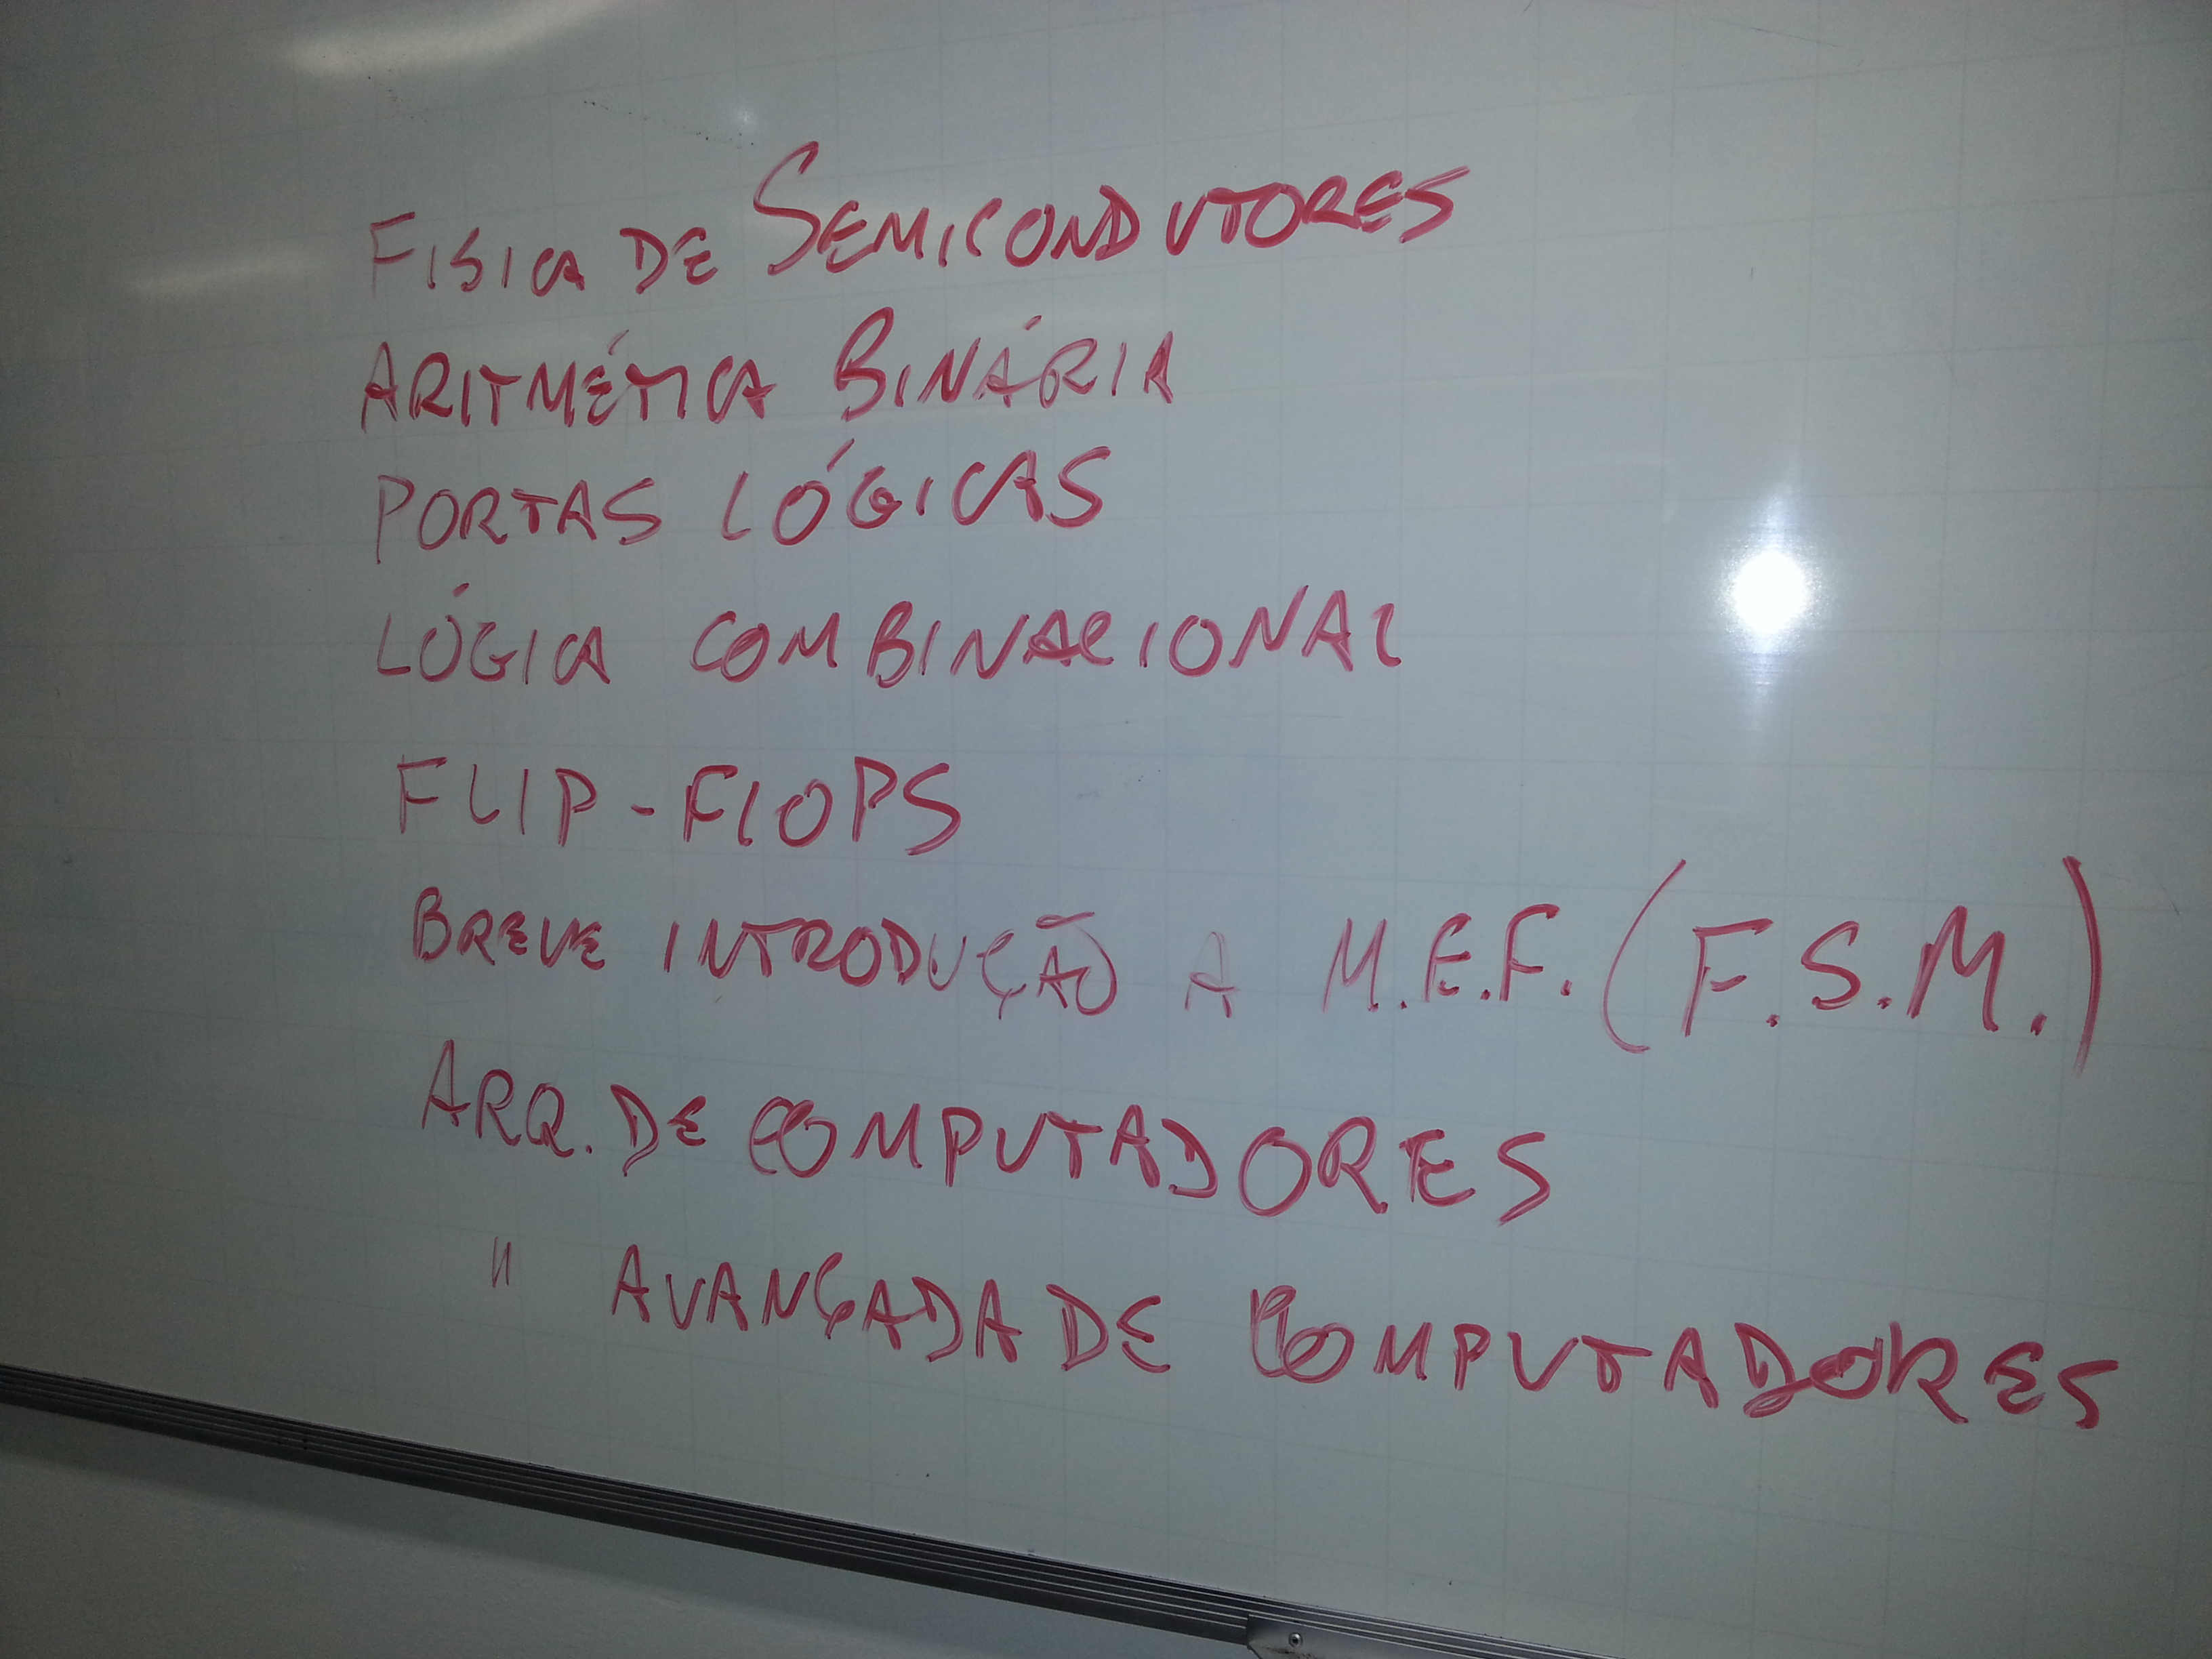 FISICA DE SEMICONDUTORES
ARITMÉTICA BINÁRIA
PORTAS LÓGICAS
LÓGICA COMBINACIONAL
FLIP-FLOPS
BREVE INTRODUÇÃO A M.E.F. (F.S.M.)
ARQ. DE COMPUTADORES
" AVANÇADA DE COMPUTADORES